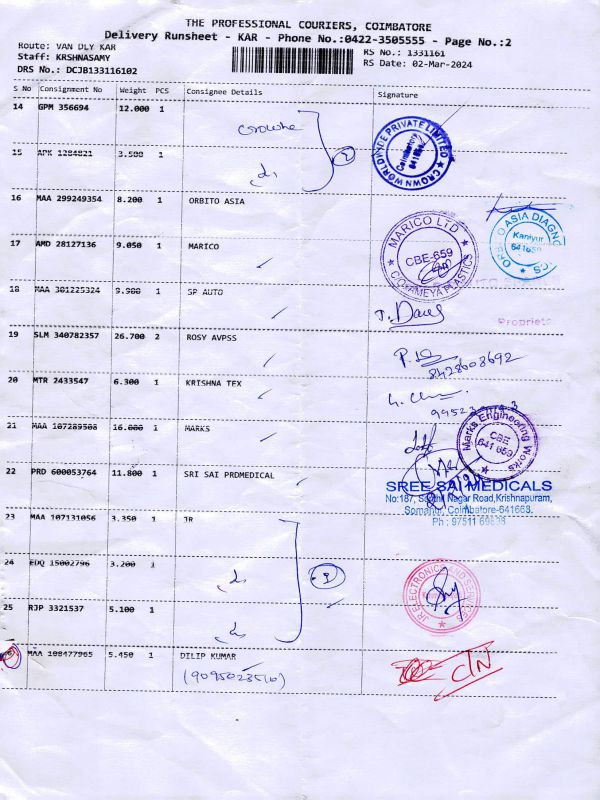 THE PROFESSIONAL COURIERS, COIMBATORE
Delivery Runsheet - KAR - Phone No.:0422-3505555 - Page No.:2
Route: VAN DLY KAR
RS No.: 1331161
Staff: KRSHNASAMY
RS Date: 02-Mar-2024
DRS No.: DCJB133116102
S No Consignment No Weight PCS Consignee Details Signature
14 GPM 356694 12.000 1
CROWN WORLDWIDE PRIVATE LIMITED
Coimbatore
15 APK 1284821 3.500 1
2
16 MAA 299249354 8.200 1 ORBITO ASIA
ORBITO ASIA DIAGNOSTICS
Kaniyur
641659
17 AMD 28127136 9.050 1 MARICO
MARICO LTD
CBE-659
C/O. AMEYA PLASTICS
18 MAA 301225324 9.900 1 SP AUTO
Proprieto
19 SLM 340782357 26.700 2 ROSY AVPSS
8428603692
20 MTR 2433547 6.300 1 KRISHNA TEX
21 MAA 107289508 16.000 1 MARKS
Marks Engineering Works
CBE
641 659
22 PRD 600053764 11.800 1 SRI SAI PRDMEDICAL
SREE SAI MEDICALS
No:187, Sakthi Nagar Road, Krishnapuram,
Somanur, Coimbatore-641668.
Ph : 97511
23 MAA 107131056 3.350 1 JR
24 EDQ 15002796 3.200 1
3
JR ELECTRONICS AND SERVICES
25 RJP 3321537 5.100 1
MAA 108477965 5.450 1 DILIP KUMAR